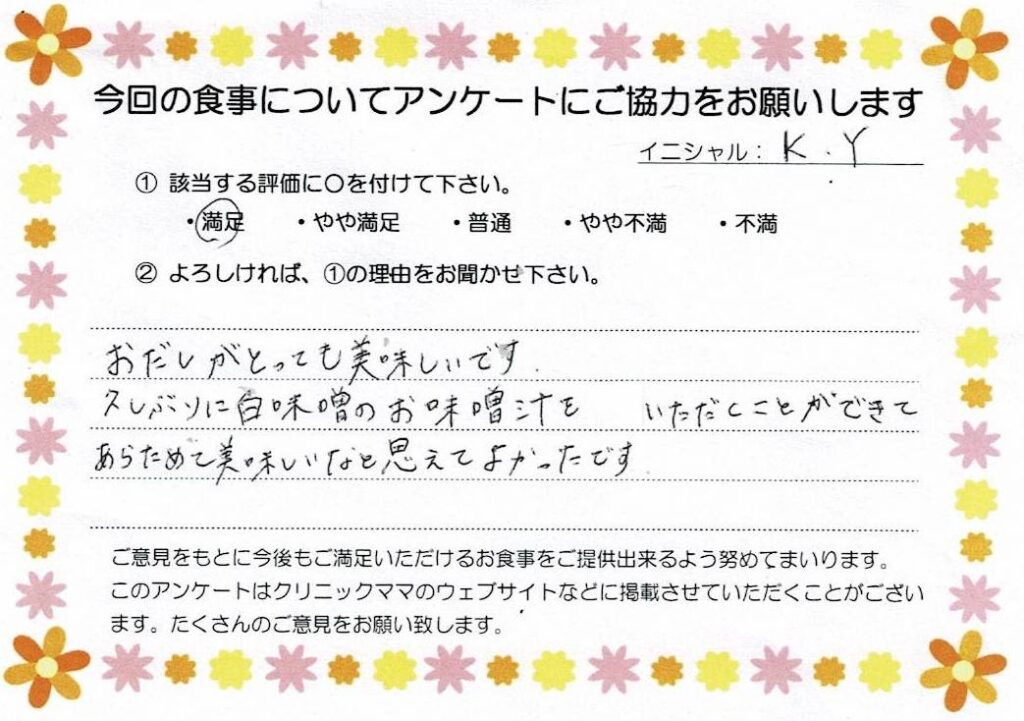 今回の食事についてアンケートにご協力をお願いします
イニシャル： K . Y
① 該当する評価に〇を付けて下さい。
・満足 ・やや満足 ・普通 ・やや不満 ・不満
② よろしければ、①の理由をお聞かせ下さい。
おだしがとっても美味しいです.
久しぶりに白味噌のお味噌汁を いただくことができて
あらためて美味しいなと思えてよかったです.
ご意見をもとに今後もご満足いただけるお食事をご提供出来るよう努めてまいります。
このアンケートはクリニックママのウェブサイトなどに掲載させていただくことがござい
ます。たくさんのご意見をお願い致します。